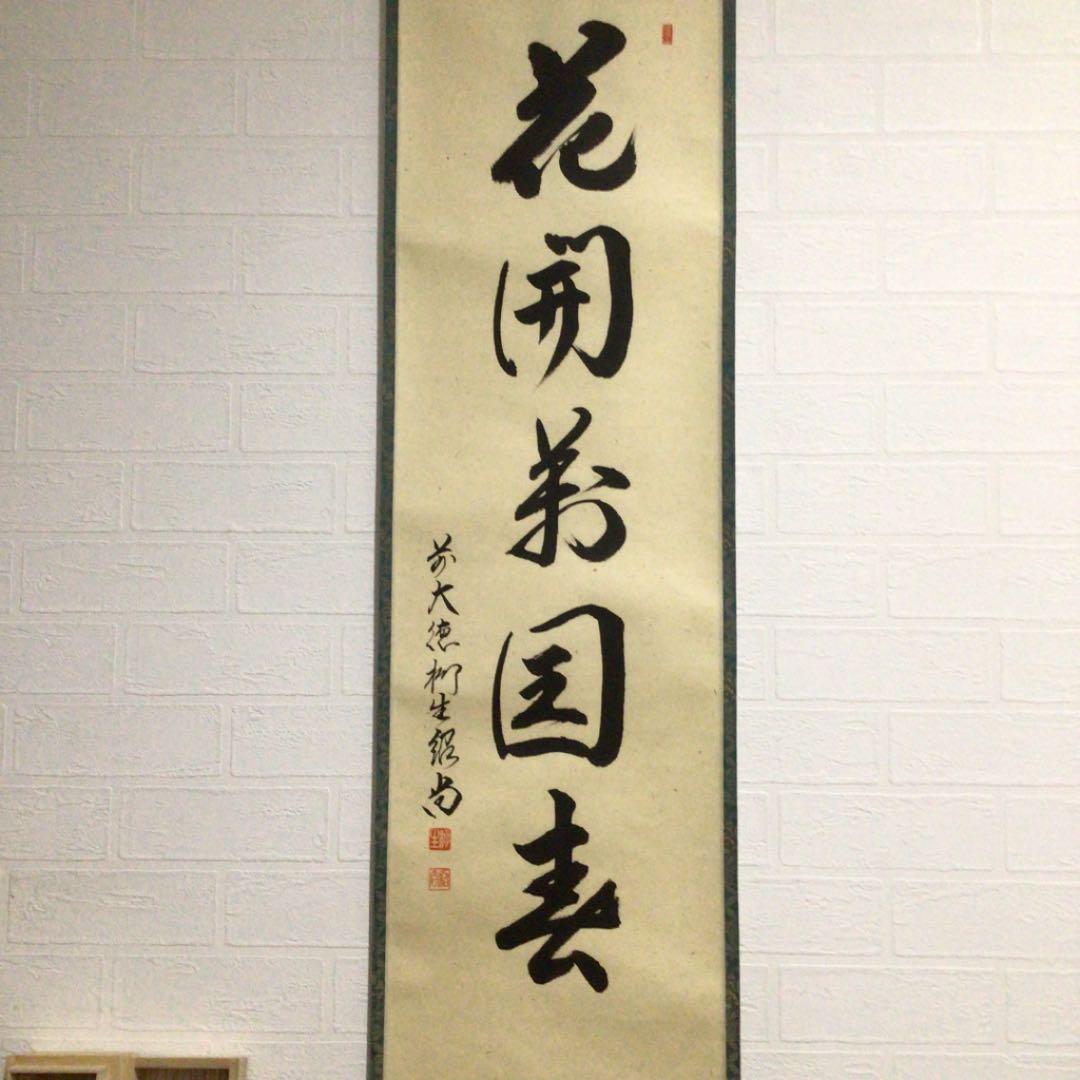 花開萬国春
前大徳柳生紹尚